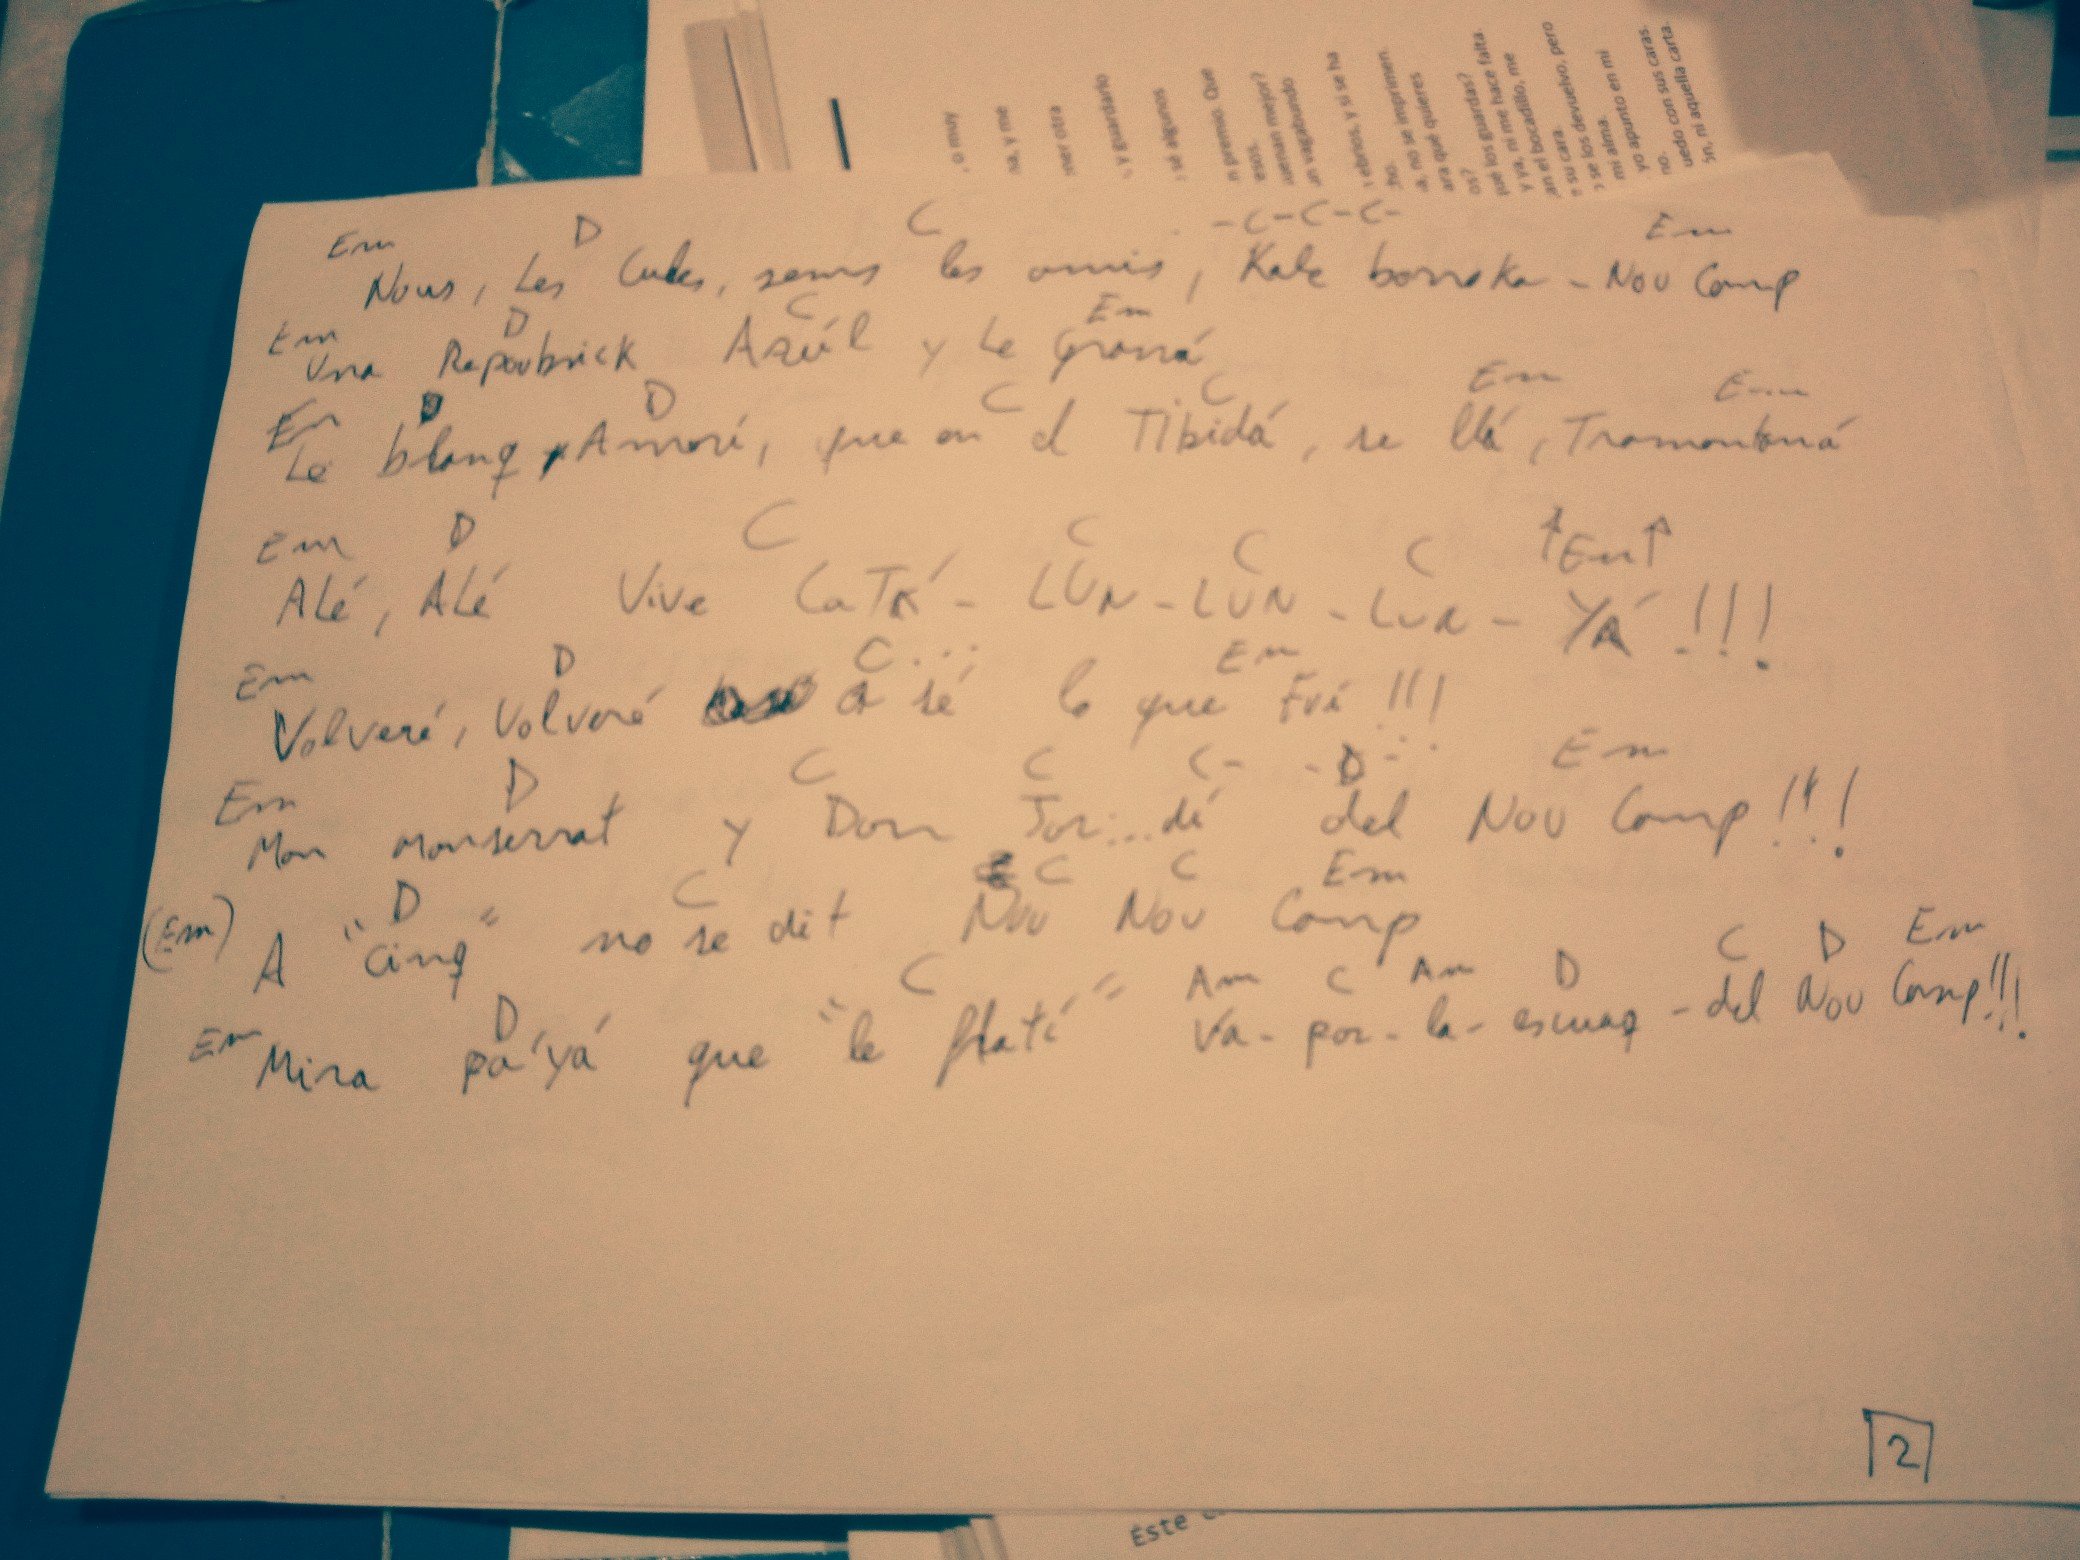 , o muy
na, y me
ner otra
, y guardarlo
sé algunos
n premio. Que
esos.
uernan mejor?
un vagabundo
ebrios, y si se ha
cho.
a, no se imprimen
ara qué quieres
os?
qué los guardas?
y ya, ni me hace falta
an el bocadillo, me
r su cara.
o se los devuelvo, pero
mi alma.
yo apunto en mi
no.
uedo con sus caras.
ón, ni aquella carta.
Em D C -C-C-C- Em
Nous, Les Cules, soms les amis, Kale borroka - Nou Camp
Em D C Em
Una Rapoubrick Azúl y Le Graná
Em D D C C Em Em
Le blanq, Amoré, que en el Tibidá, se llá, Tramontaná
Em D C C C C ↑Em↑
ALé, ALé Vive CaTÁ - LUN - LUN - LUN - YÁ !!!
Em D C... Em
Volveré, Volveré a sé lo que Fuí !!!
Em D C C C- -D- Em
Mon monserrat y Don Jor...dí del Nou Camp!!!
(Em) D C C C Em
A "cinq" no se dit Nou Nou Camp
Em D C Am C Am D C D Em
Mira pa'yá que "le flatí" Va - por - la - escuaq - del Nou Camp!!!
2
Este